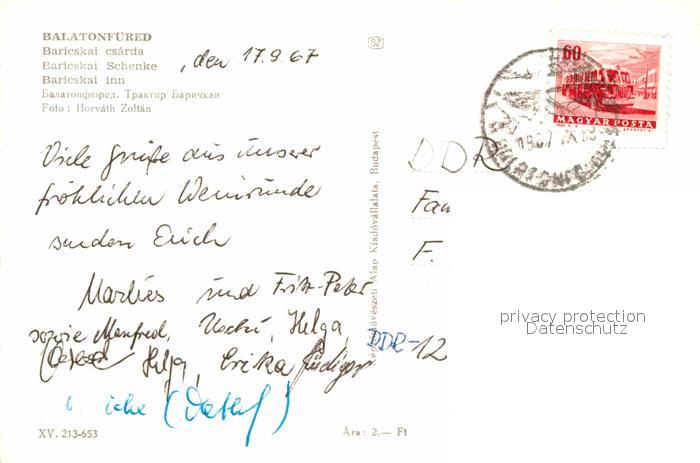 BALATONFÜRED
Baricskai csárda
Baricskai Schenke
Baricskai inn
Балатонфюред. Трактир Баричкаи
Foto: Horváth Zoltán
, den 17.9.67
SZ
60
MAGYAR POSTA
Viele Grüße aus unserer
fröhlichen Weinrunde
senden Euch
Marlies und Fritz-Peter
sowie Manfred, Helga,
Helga, Erika Rüdiger
(Detlef)
XV. 213-653
Ára: 2,— Ft
Képzőművészeti Alap Kiadóvállalata, Budapest
DDR
Fam
F.
DDR-12
privacy protection
Datenschutz